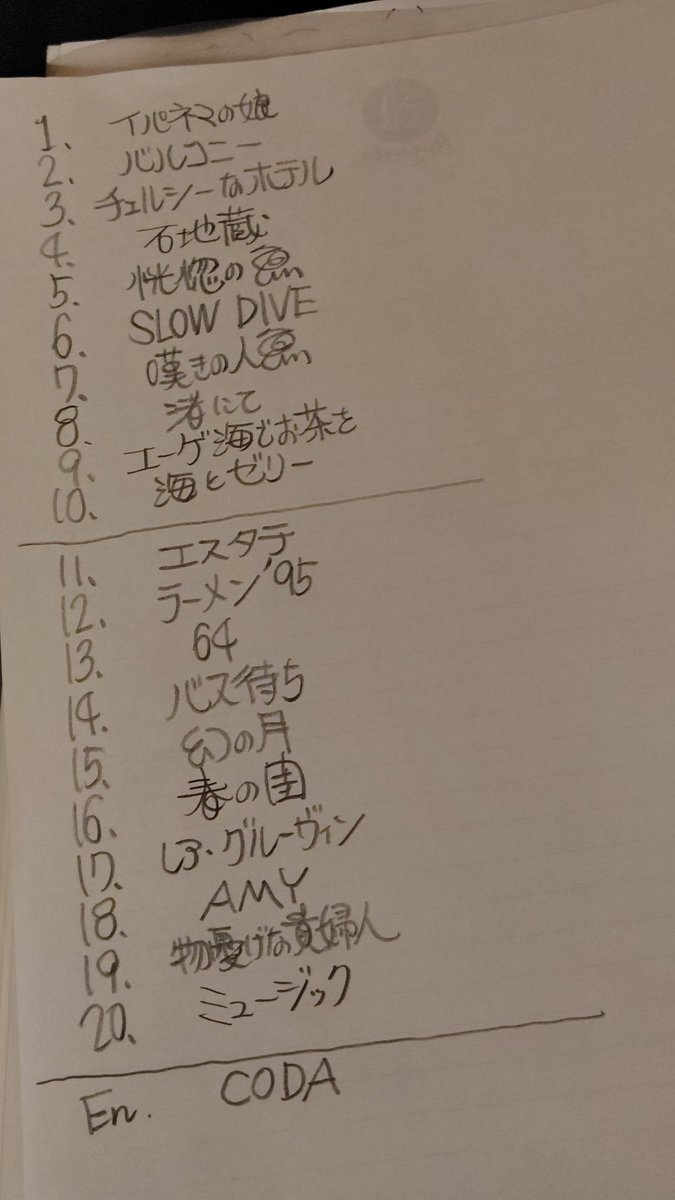 1. イパネマの娘
2. バルコニー
3. チェルシーなホテル
4. 石地蔵
5. 恍惚の魚
6. SLOW DIVE
7. 嘆きの人魚
8. 渚にて
9. エーゲ海でお茶を
10. 海とゼリー
11. エスタテ
12. ラーメン'95
13. 64
14. バス待ち
15. 幻の月
16. 春の国
17. レア・グルーヴィン
18. AMY
19. 物憂げな貴婦人
20. ミュージック
En. CODA